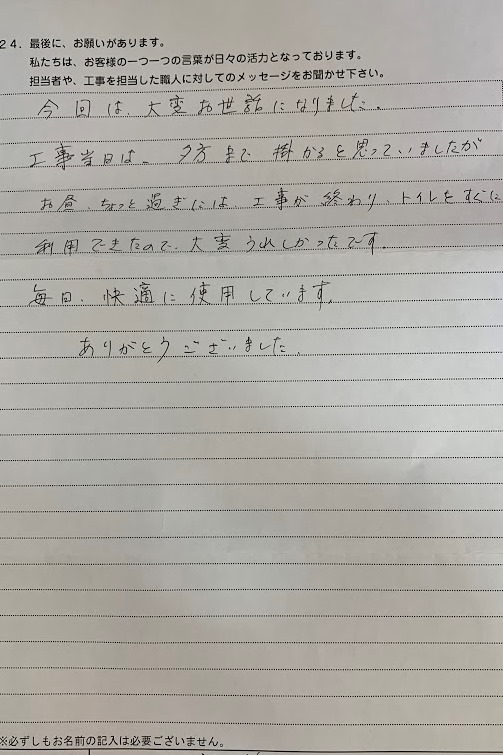 24．最後に、お願いがあります。
私たちは、お客様の一つ一つの言葉が日々の活力となっております。
担当者や、工事を担当した職人に対してのメッセージをお聞かせ下さい。
今回は、大変お世話になりました。
工事当日は、夕方まで掛かると思っていましたが
お昼、ちょっと過ぎには工事が終わり、トイレをすぐに
利用できたので、大変うれしかったです。
毎日、快適に使用しています。
ありがとうございました。
※必ずしもお名前の記入は必要ございません。